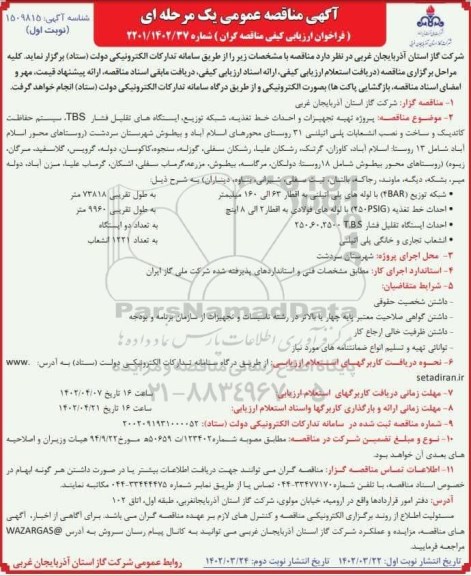 شناسه آگهی: ۱۵۰۹۸۱۵
(نوبت اول)
آگهی مناقصه عمومی یک مرحله ای
( فراخوان ارزیابی کیفی مناقصه گران ) شماره ۲۲۰۱/۱۴۰۲/۳۷
شرکت گاز استان آذربایجان غربی در نظر دارد مناقصه با مشخصات زیر را از طریق سامانه تدارکات الکترونیکی دولت (ستاد) برگزار نماید. کلیه
مراحل برگزاری مناقصه (دریافت استعلام ارزیابی کیفی، ارائه اسناد ارزیابی کیفی، دریافت مابقی اسناد مناقصه، ارائه پیشنهاد قیمت، مهر و
امضای اسناد مناقصه، بازگشایی پاکت ها) بصورت الکترونیکی و از طریق درگاه سامانه تدارکات الکترونیکی دولت (ستاد) انجام خواهد گرفت.
۱- مناقصه گزار: شرکت گاز استان آذربایجان غربی
۲- موضوع مناقصه: پروژه تهیه تجهیزات و احداث خط تغذیه، شبکه توزیع، ایستگاه های تقلیل فشار TBS، سیستم حفاظت
کاتدیک و ساخت و نصب انشعابات پلی اتیلنی ۳۱ روستای محورهای اسلام آباد و بیطوش شهرستان سردشت (روستاهای محور اسلام
آباد شامل ۱۳ روستا: اسلام آباد، کاوزان، گرتک، رشکان علیا، رشکان سفلی، گوزله،
(روستاهای محور بیطوش شامل ۱۸ روستا:
• شبکه توزیع (۴BAR) با لوله های پلی اتیلنی به اقطار ۶۳ الی ۱۶۰ میلیمتر به طول تقریبی ۷۳۸۱۸ متر
• احداث خط تغذیه (۲۵۰PSIG) با لوله های فولادی به اقطار ۲ الی ۸ اینچ به طول تقریبی ۹۹۶۰ متر
• احداث ایستگاه تقلیل فشار T.B.S به تعداد دو ایستگاه
• انشعاب تجاری و خانگی پلی اتیلنی به تعداد ۱۲۲۱ انشعاب
۳- محل اجرای پروژه: شهرستان سردشت
۴- استاندارد اجرای کار: مطابق مشخصات فنی و استانداردهای پذیرفته شده شرکت ملی گاز ایران
۵- شرایط متقاضیان:
- داشتن شخصیت حقوقی
- داشتن گواهی صلاحیت معتبر پایه چهار یا بالاتر در رشته تاسیسات و تجهیزات از سازمان برنامه و بودجه
- داشتن ظرفیت خالی ارجاع کار
- توانائی تهیه و تسلیم انواع ضمانتنامه های مورد نیاز
۶- نحوه دریافت کاربرگهای استعلام ارزیابی: از طریق درگاه سامانه تدارکات الکترونیکی دولت (ستاد) به آدرس: www.
setadiran.ir
۷- مهلت زمانی دریافت کاربرگهای استعلام ارزیابی: ساعت ۱۶ تاریخ ۱۴۰۲/۰۴/۰۷
۸- مهلت زمانی ارائه و بارگذاری کاربرگها واسناد استعلام ارزیابی: ساعت ۱۶ تاریخ ۱۴۰۲/۰۴/۲۱
۹- شماره مناقصه ثبت شده در سامانه تدارکات الکترونیکی دولت (ستاد): ۲۰۰۲۰۹۱۹۳۱۰۰۰۰۵۲
۱۰- نوع و مبلغ تضمین شرکت در مناقصه: مطابق مصوبه شماره ۱۲۳۴۰۲/ت۵۰۶۵۹ه مورخ ۹۴/۹/۲۲ هیات وزیران و اصلاحیه
های بعدی آن خواهد بود.
۱۱- اطلاعات تماس مناقصه گزار: مناقصه گران می توانند جهت دریافت اطلاعات بیشتر یا در صورت داشتن هر گونه ابهام در
خصوص اسناد مناقصه، با تلفن شماره ۰۴۴-۳۳۴۷۷۱۷۰ تماس حاصل فرمایند یا از طریق نمابر شماره ۰۴۴-۳۳۴۴۴۴۷۵ مکاتبه نمایند.
آدرس: دفتر امور قراردادها واقع در ارومیه، خیابان مولوی، شرکت گاز استان آذربایجانغربی، طبقه اول، اتاق ۱۰۲
مسئولیت اطلاع از روند برگزاری الکترونیکی مناقصه و کنترل های لازم بر عهده مناقصه گران می باشد. برای آگاهی از اخبار، آگهی
های مناقصه، مزایده و عملکرد شرکت گاز استان آذربایجان غربی می توانید به کانال پیام رسان سروش به آدرس @WAZARGAS
مراجعه فرمایید.
تاریخ انتشار نوبت اول: ۱۴۰۲/۰۳/۲۲ تاریخ انتشار نوبت دوم: ۱۴۰۲/۰۳/۲۴ روابط عمومی شرکت گاز استان آذربایجان غربی
ParsNamadData
۰۲۱-۸۸۳۴۹۶۷۰-۵